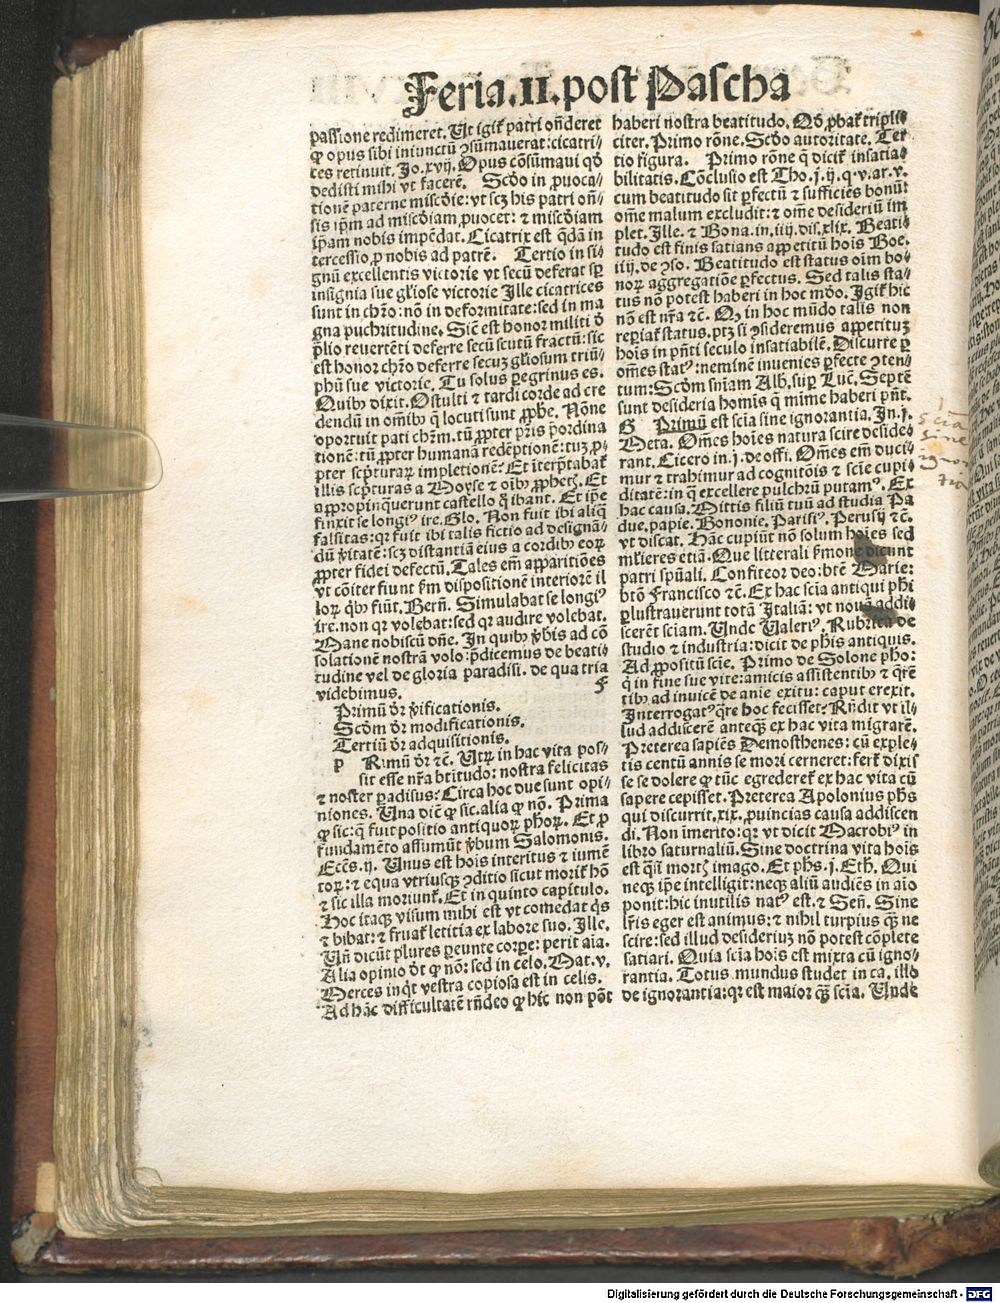 Feria.II.post Pascha
passione redimeret. Ut igiť patri oñderet
ꝙ opus sibi iniunctū ꝯsūmauerat: cicatri-
ces retinuit. Jo.xvij. Opus cōsūmaui qď
dedisti mihi vt facerē. Scďo in ꝓuoca/
tionē paterne miscďie: vt scꝫ his patri oñ/
sis ip̄m ad miscďiam ꝓuocet: ⁊ miscďiam
ip̄am nobis impēdat. Cicatrix est q̄dā in
tercessio ꝓ nobis ad patrē. Tertio in si-
gnū excellentis victorie vt secū deferat sꝑ
insignia sue gl̄iose victorie Ille cicatrices
sunt in chr̄o: nō in deformitate: sed in ma
gna pulchritudine. Sic̄ est honor militi ď
p̄lio reuertēti deferre secū scutū fractū: sic
est honor chr̄o deferre secuꝫ gl̄iosum triū/
phū sue victorie. Tu solus ꝑegrinus es.
Quibꝰ dixit. O stulti ⁊ tardi corde ad cre
dendū in om̄ibꝰ q̄ locuti sunt ꝓph̄e. Nōne
oportuit pati chr̄m. tū ꝓpter p̄ris p̄ordina
tionē: tū ꝓpter humanā redēptionē: tuꝫ ꝓ/
pter scp̄turaꝝ impletionē: Et iterp̄tabať
illis scp̄turas a Moyse ⁊ oībꝰ ꝓphetꝭ. Et
appropinq̄uerunt castello q̄ ibant. Et ip̄e
finxit se longiꝰ ire. Glo. Non fuit ibi aliq̄
falsitas: qꝛ fuit ibi talis fictio ad designā/
dū v̄itatē: scꝫ distantiā eius a cordibꝰ eoꝝ
ꝓpter fidei defectū. Tales em̄ apparitiōes
vt cōiter fiunt ẜm dispositionē interiorē il
loꝝ q̄bꝰ fiūt. Bern̄. Simulabat se longiꝰ
ire. non qꝛ volebat: sed qꝛ audire volebat.
Mane nobiscū dn̄e. In quibꝰ v̄bis ad cō
solationē nostrā volo p̄dicemus de beati/
tudine vel de gloria paradisi. de qua tria
videbimus. F
Primū ďr v̄ificationis.
Scďm ďr modificationis.
Tertiū ďr adquisitionis.
p Rimū ďr ⁊c. Utꝝ in hac vita pos-
sit esse nr̄a btitudo: nostra felicitas
⁊ noster ꝑadisus: Circa hoc due sunt opi/
niones. Una dic̄ ꝙ sic. alia ꝙ nō. Prima
ꝙ sic: q̄ fuit positio antiquoꝝ ph̄oꝝ. Et ꝓ
fundamēto assumūt v̄bum Salomonis.
Ecc̄s.ij. Unus est hoīs interitus ⁊ iumē
toꝝ: ⁊ equa vtriusqꝫ ꝯditio sicut moriť hō
⁊ sic illa moriunť. Et in quinto capitulo.
Hoc itaqꝫ visum mihi est vt comedat q̄s
⁊ bibat: ⁊ fruať letitia ex labore suo. Ille.
Un̄ dicūt plures ꝑeunte corꝑe: perit aīa.
Alia opinio ďt ꝙ nō: sed in celo. Mat.v.
Merces inq̄t vestra copiosa est in celis.
Ad hāc difficultatē rn̄deo ꝙ hic non pōt
haberi nostra beatitudo. Qď ꝓbať tripli/
citer. Primo rōne. Scďo autoritate. Ter
tio figura. Primo rōne q̄ diciť insatia/
bilitatis. Cōclusio est Tho.j.ij.q.v.ar.v.
cum beatitudo sit ꝑfectū ⁊ sufficiēs bonū:
om̄e malum excludit: ⁊ om̄e desideriū im
plet. Ille. ⁊ Bona.in.iiij.dis.xlix. Beati-
tudo est finis satians appetitū hoīs Boe.
iiij.de ꝯso. Beatitudo est status oīm bo-
noꝝ aggregatiōe ꝑfectus. Sed talis sta-
tus nō potest haberi in hoc mďo. Igiť hic
non est nr̄a ⁊c̄. Qꝙ in hoc mūdo talis non
reꝑiať status. ptꝫ si ꝯsideremus appetituꝫ
hoīs in p̄nti seculo insatiabilē. Discurre ꝑ
om̄es statꝰ: neminē inuenies ꝑfecte ꝯten-
tum: Scďm sn̄iam Alb̄. suꝑ Luc̄. Septē
sunt desideria homīs q̄ mime haberi pn̄t.
G Primū est scīa sine ignorantia. In.j.
Meta. Om̄es hoīes natura scire deside-
rant. Cicero in.j.de offi. Om̄es em̄ duci-
mur ⁊ trahimur ad cognitōis ⁊ scīe cupi-
ditatē: in q̄ excellere pulchrū putamꝰ. Ex
hac causa. Mittis filiū tuū ad studia Pa
due. papie. Bononie. Parisiꝰ. Perusij ⁊c̄.
vt discat. Hāc cupiūt nō solum hoīes sed
ml̄ieres etiā. Que litterali ẜmone dicunt
patri spūali. Confiteor deo: btē Marie:
btō Francisco ⁊c̄. Ex hac scīa antiqui ph̄i
ꝑlustrauerunt totā Italiā: vt nouā addi/
scerēt sciam. Unde Ualeriꝰ. Rubrica de
studio ⁊ industria: dicit de ph̄is antiquis.
Ad ꝓpositū scīe. Primo de Solone ph̄o:
q̄ in fine sue vite: amicis assistentibꝰ ⁊ q̄rē
tibꝰ ad inuicē de anie exitu: caput erexit.
Interrogatꝰ q̄re hoc fecisset: Rn̄dit vt il/
lud addiscerē anteqꝫ ex hac vita migrarē.
Preterea sapiēs Demosthenes: cū exple-
tis centū annis se mori cerneret: ferť dixis
se se dolere ꝙ tūc egredereť ex hac vita cū
sapere cepisset. Preterea Apolonius ph̄s
qui discurrit.xix.ꝓuincias causa addiscen
di. Non īmerito: qꝛ vt dicit Macrobiꝰ in
libro saturnaliū. Sine doctrina vita hoīs
est q̄si mortꝭ imago. Et ph̄s.j.Eth. Qui
neqꝫ ip̄e intelligit: neqꝫ aliū audiēs in aīo
ponit: hic inutilis natꝰ est. ⁊ Sen̄. Sine
lr̄is eger est animus: ⁊ nihil turpius qꝫ ne
scire: sed illud desideriuꝫ nō potest cōplete
satiari. Quia scīa hoīs est mixta cū igno-
rantia. Totus mundus studet in ca. illo
de ignorantia: qꝛ est maior qꝫ scīa. Unde
1
sciā
sine
Digitalisierung gefördert durch die Deutsche Forschungsgemeinschaft - DFG